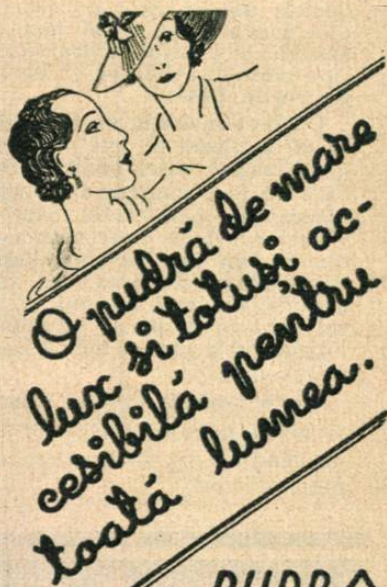 O pudră de mare
lux si totusi ac-
cesibilă pentru
toată lumea.